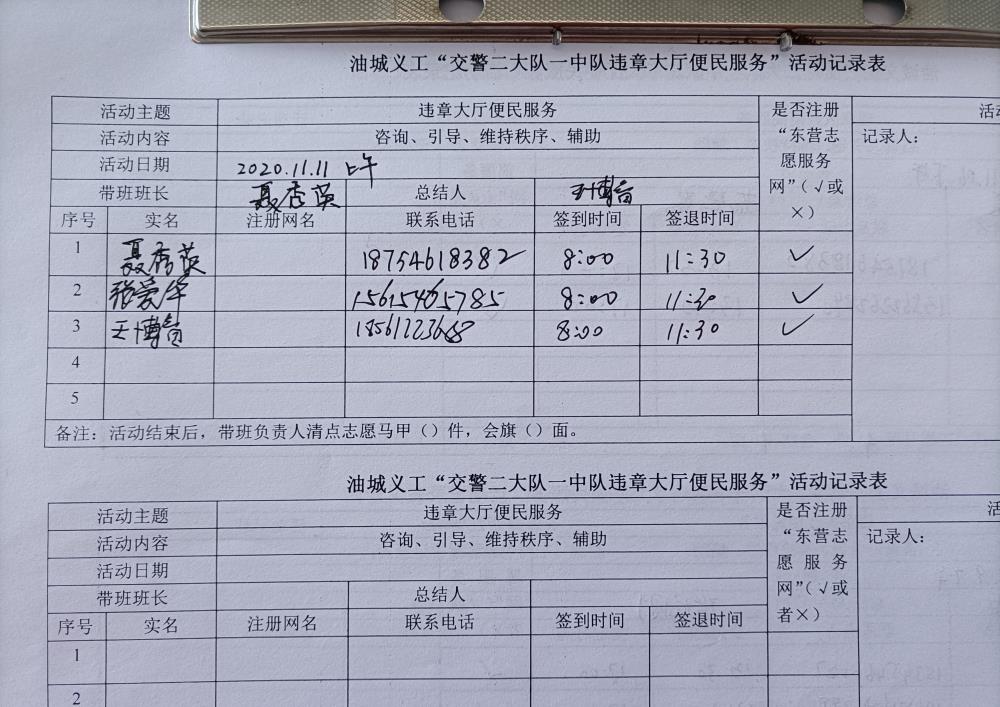 油城义工“交警二大队一中队违章大厅便民服务”活动记录表
活动主题 违章大厅便民服务 是否注册“东营志愿服务网”（√或×） 活
活动内容 咨询、引导、维持秩序、辅助 记录人：
活动日期 2020.11.11 上午
带班班长 聂秀英 总结人 王博
序号 实名 注册网名 联系电话 签到时间 签退时间
1 聂秀英 18754618382 8:00 11:30 ✓
2 张爱华 15615465785 8:00 11:30 ✓
3 王博 8:00 11:30 ✓
4
5
备注：活动结束后，带班负责人清点志愿马甲（）件，会旗（）面。
油城义工“交警二大队一中队违章大厅便民服务”活动记录表
活动主题 违章大厅便民服务 是否注册“东营志愿服务网”（√或者×） 活
活动内容 咨询、引导、维持秩序、辅助 记录人：
活动日期
带班班长 总结人
序号 实名 注册网名 联系电话 签到时间 签退时间
1
2